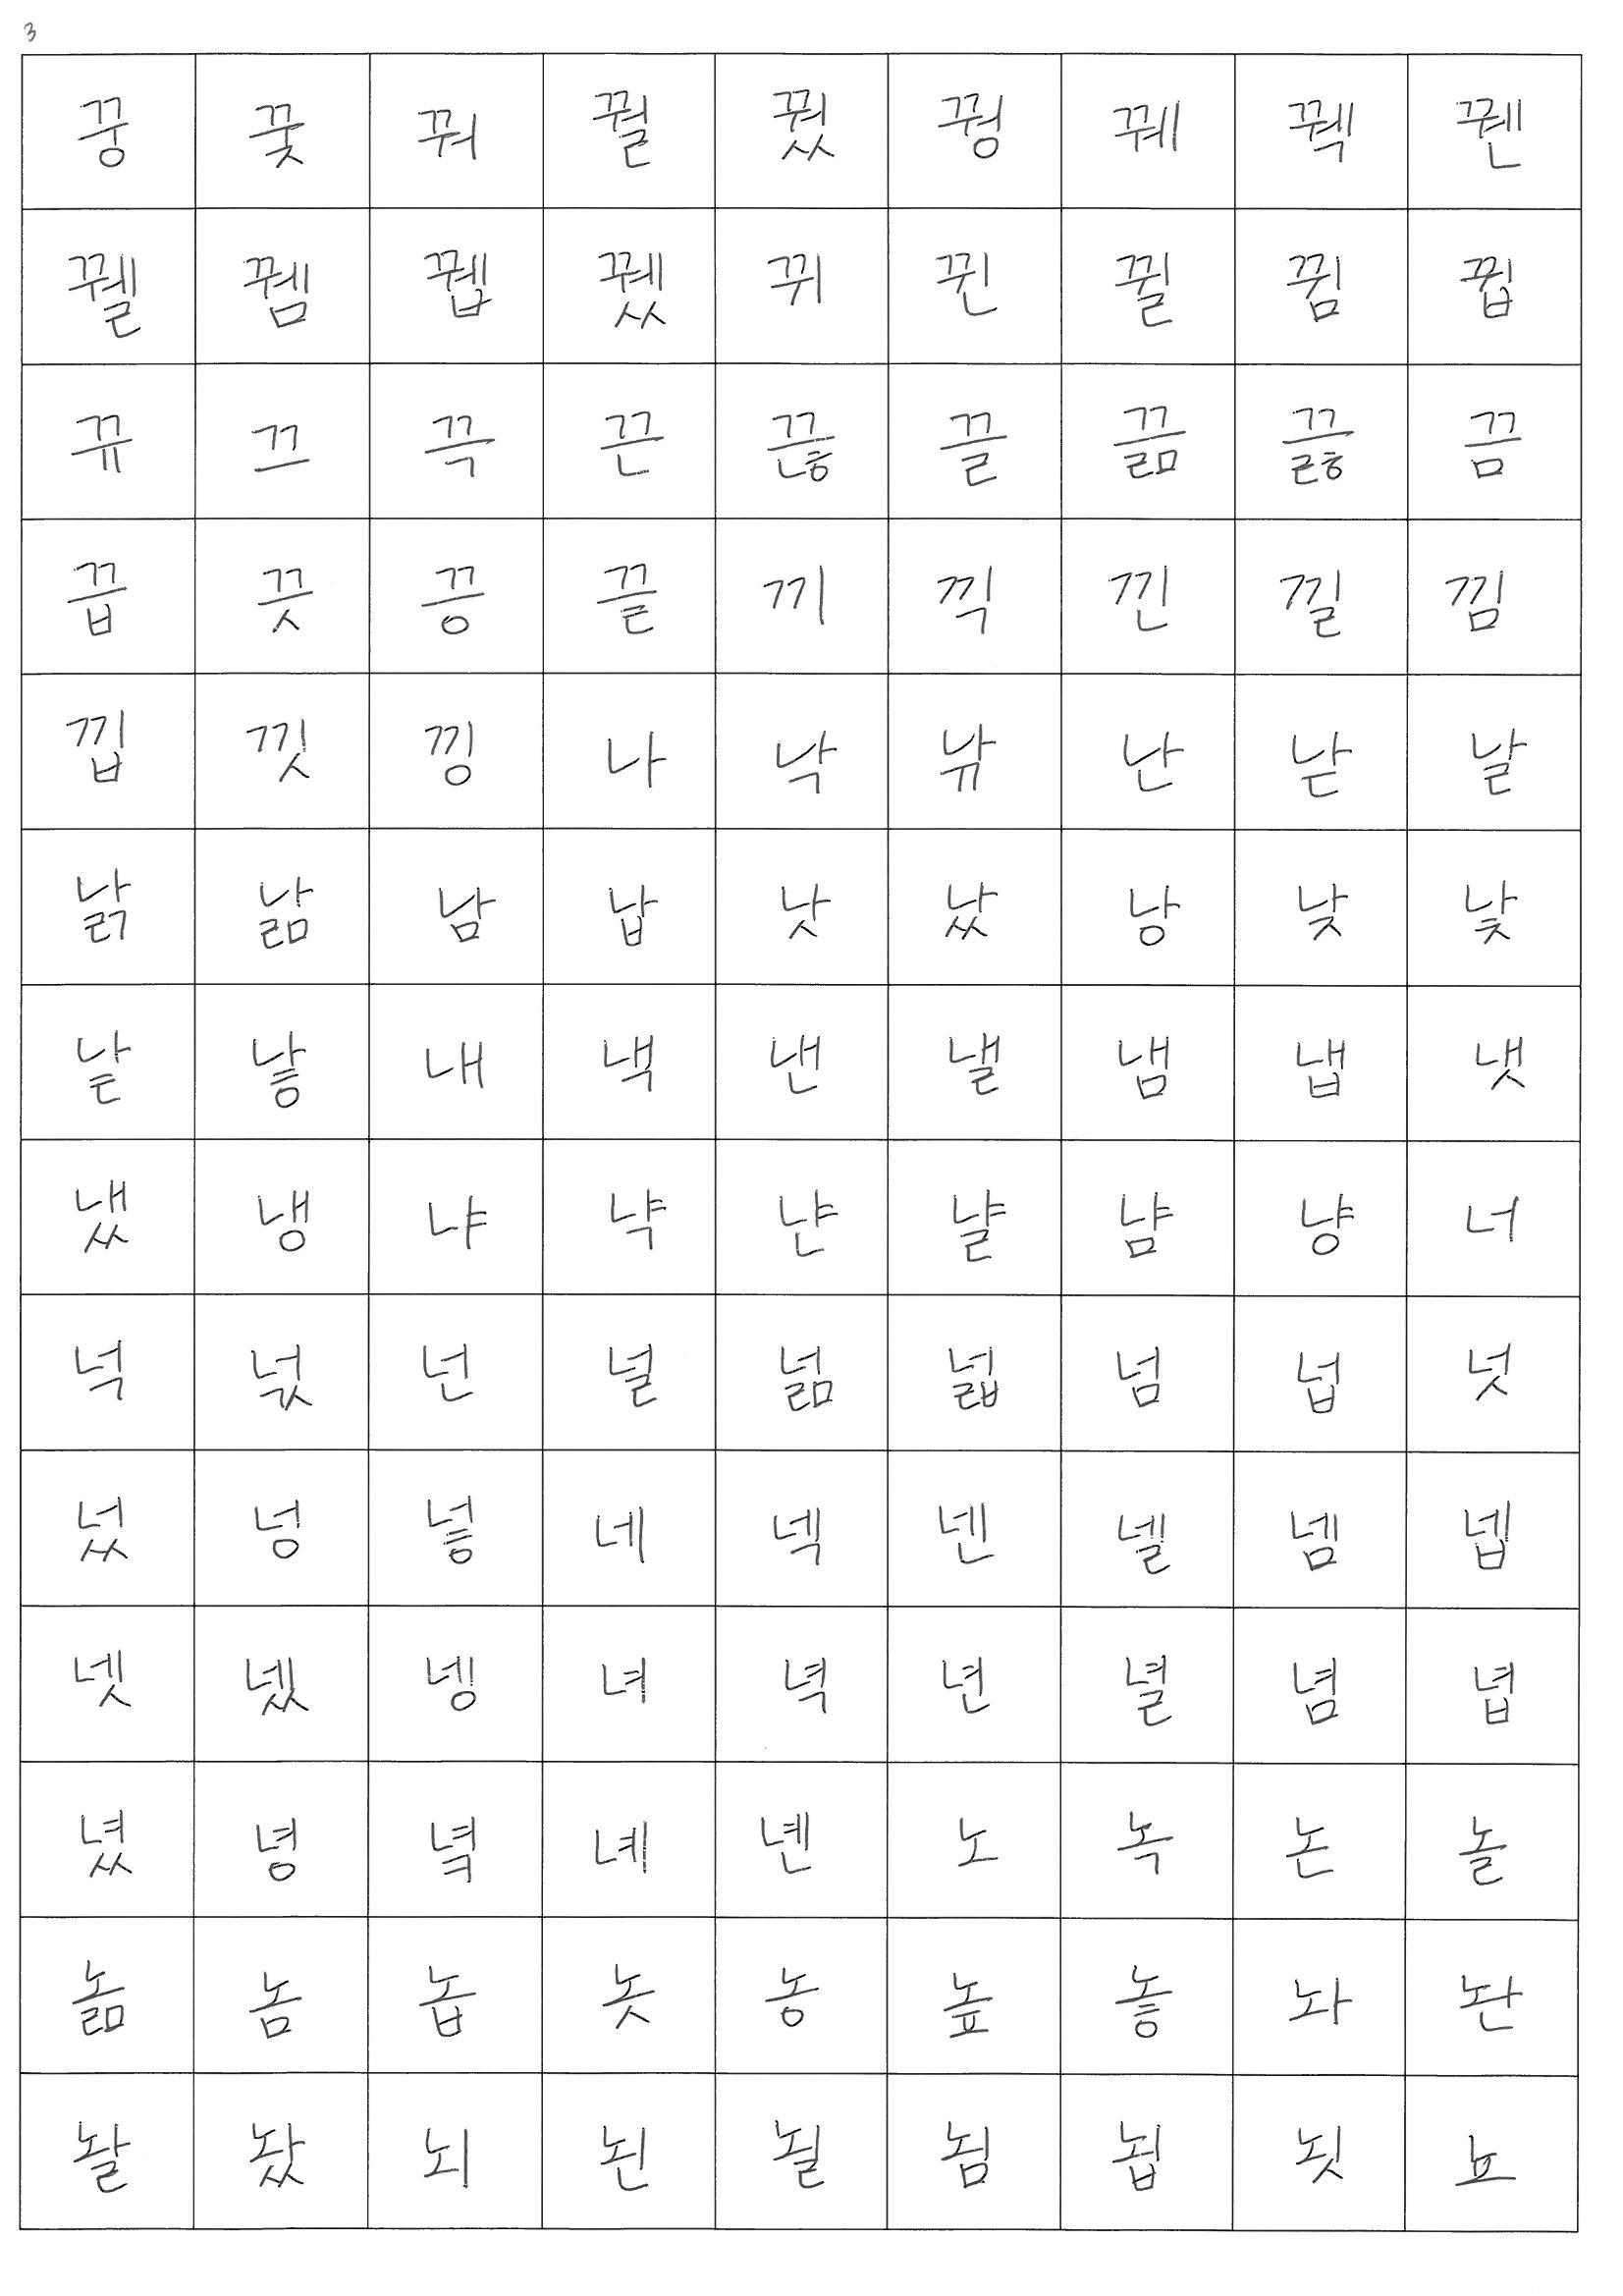 3
꿍 꿎 꿔 꿜 꿨 꿩 꿰 꿱 꿴
꿸 뀀 뀁 뀄 뀌 뀐 뀔 뀜 뀝
뀨 끄 끅 끈 끊 끌 끎 끓 끔
끕 끗 끙 끝 끼 끽 낀 낄 낌
낍 낏 낑 나 낙 낚 난 낟 날
낡 낢 남 납 낫 났 낭 낮 낯
낱 낳 내 낵 낸 낼 냄 냅 냇
냈 냉 냐 냑 냔 냘 냠 냥 너
넉 넋 넌 널 넒 넓 넘 넙 넛
넜 넝 넣 네 넥 넨 넬 넴 넵
넷 넸 넹 녀 녁 년 녈 념 녑
녔 녕 녘 녜 녠 노 녹 논 놀
놂 놈 놉 놋 농 높 놓 놔 놘
놜 놨 뇌 뇐 뇔 뇜 뇝 뇟 뇨